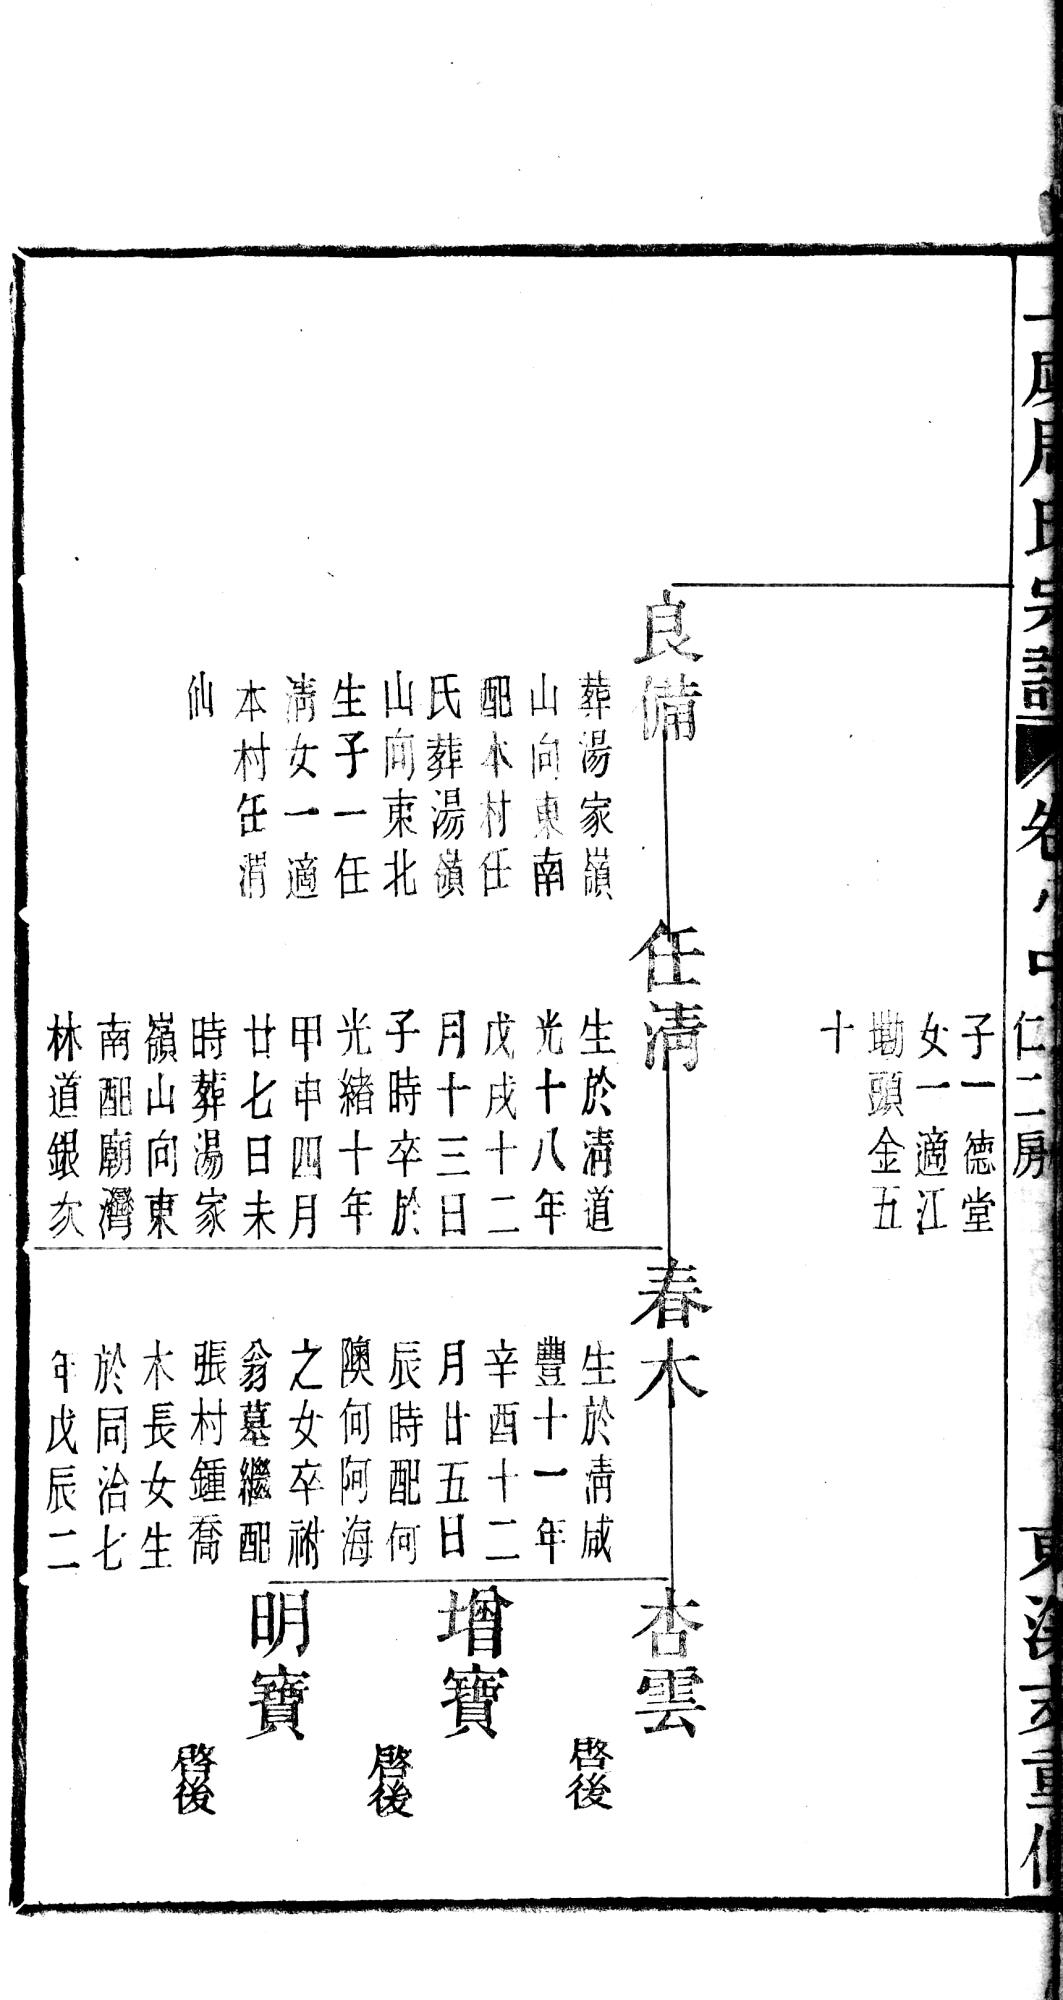 周氏宗譜
卷八中
仁二房
重修
子一德堂
女一適江
墈頭金五
十
良備
葬湯家嶺
山向東南
配本村任
氏葬湯嶺
山向東北
生子一任
清女一適
本村任渭
仙
任清
生於清道
光十八年
戊戌十二
月十三日
子時卒於
光緒十年
甲申四月
廿七日未
時葬湯家
嶺山向東
南配廟灣
林道銀次
春木
生於清咸
豐十一年
辛酉十二
月廿五日
辰時配何
隩何阿海
之女卒祔
翁墓繼配
張村鍾喬
木長女生
於同治七
年戊辰二
杏雲
啓後
增寶
啓後
明寶
啓後